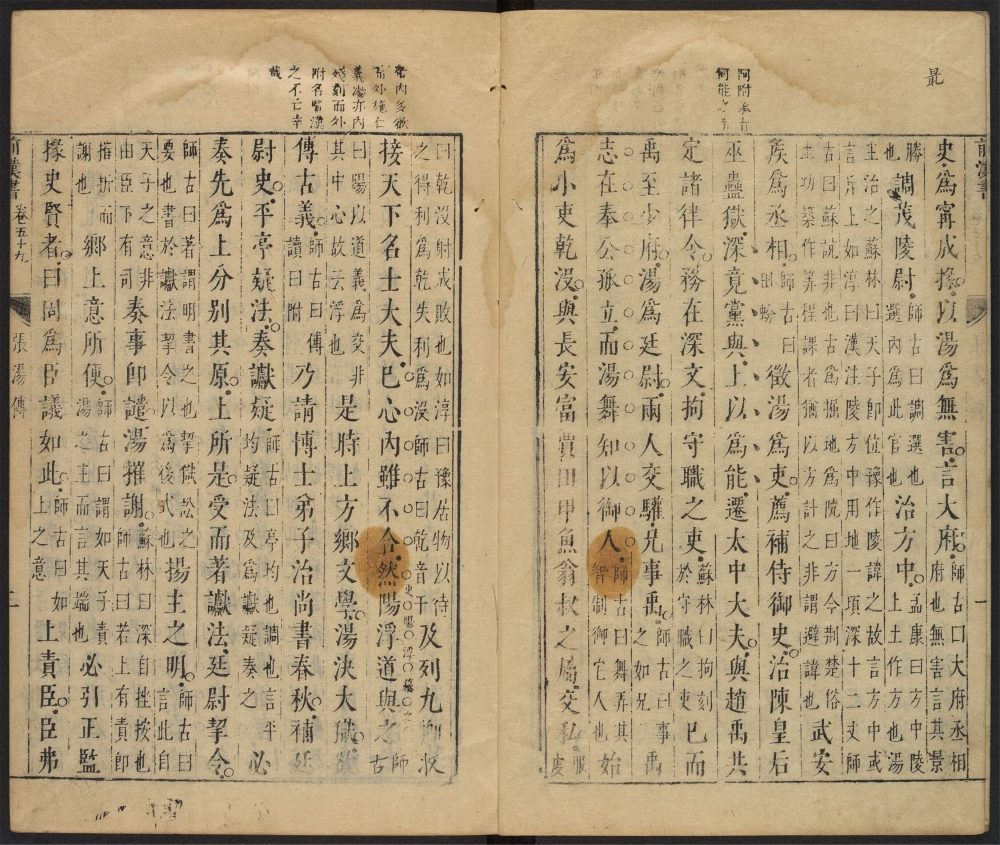 最
史爲甯成掾以湯爲無害言大府師古曰大府丞相府也無害言其最
勝也調茂陵尉師古曰調選也選內爲此官也治方中孟康曰方中陵上土作方也湯
主治之蘇林曰天子即位豫作陵諱之故言方中或言斥上如淳曰漢注陵方中用地一頃深十二丈師
古曰蘇說非也古爲掘地爲阬曰方今荆楚俗土功築作算程課者猶以方計之非謂避諱也武安
矦爲丞相師古曰田蚡徵湯爲吏薦補侍御史治陳皇后
巫蠱獄深竟黨與上以爲能遷太中大夫與趙禹共
定諸律令務在深文拘守職之吏蘇林曰拘刻於守職之吏已而
禹至少府湯爲廷尉兩人交驩兄事禹師古曰事之如兄禹
志在奉公孤立而湯舞知以御人師古曰舞弄其智制御它人也始
爲小吏乾沒與長安富賈田甲魚翁叔之屬交私服虔
前漢書
一
老內多欲
而外施仁
義湯亦內
殘刻而外
附名賢漢
之不亡幸
哉
曰乾沒射成敗也如淳曰豫居物以待之得利爲乾失利爲沒師古曰乾音干及列九卿收
接天下名士大夫已心內雖不合然陽浮道與之師古
曰陽以道義爲交非其中心故云浮也是時上方鄉文學湯決大獄欲
傅古義師古曰傅讀曰附乃請博士弟子治尚書春秋補廷
尉史平亭疑法奏讞疑師古曰亭均也調也言平均疑法及爲讞疑奏之必
奏先爲上分別其原上所是受而著讞法廷尉挈令
師古曰著謂明書之也挈獄訟之要也書於讞法挈令以爲後式也揚主之明師古曰言此自
天子之意非由臣下有司奏事即譴湯摧謝蘇林曰深自挫按也師古曰若上有責即
摧折而謝也鄉上意所便師古曰謂如天子責湯之主而言其端也必引正監
掾史賢者曰固爲臣議如此師古曰如上之意上責臣臣弗
前漢書 卷五十九 張湯傳